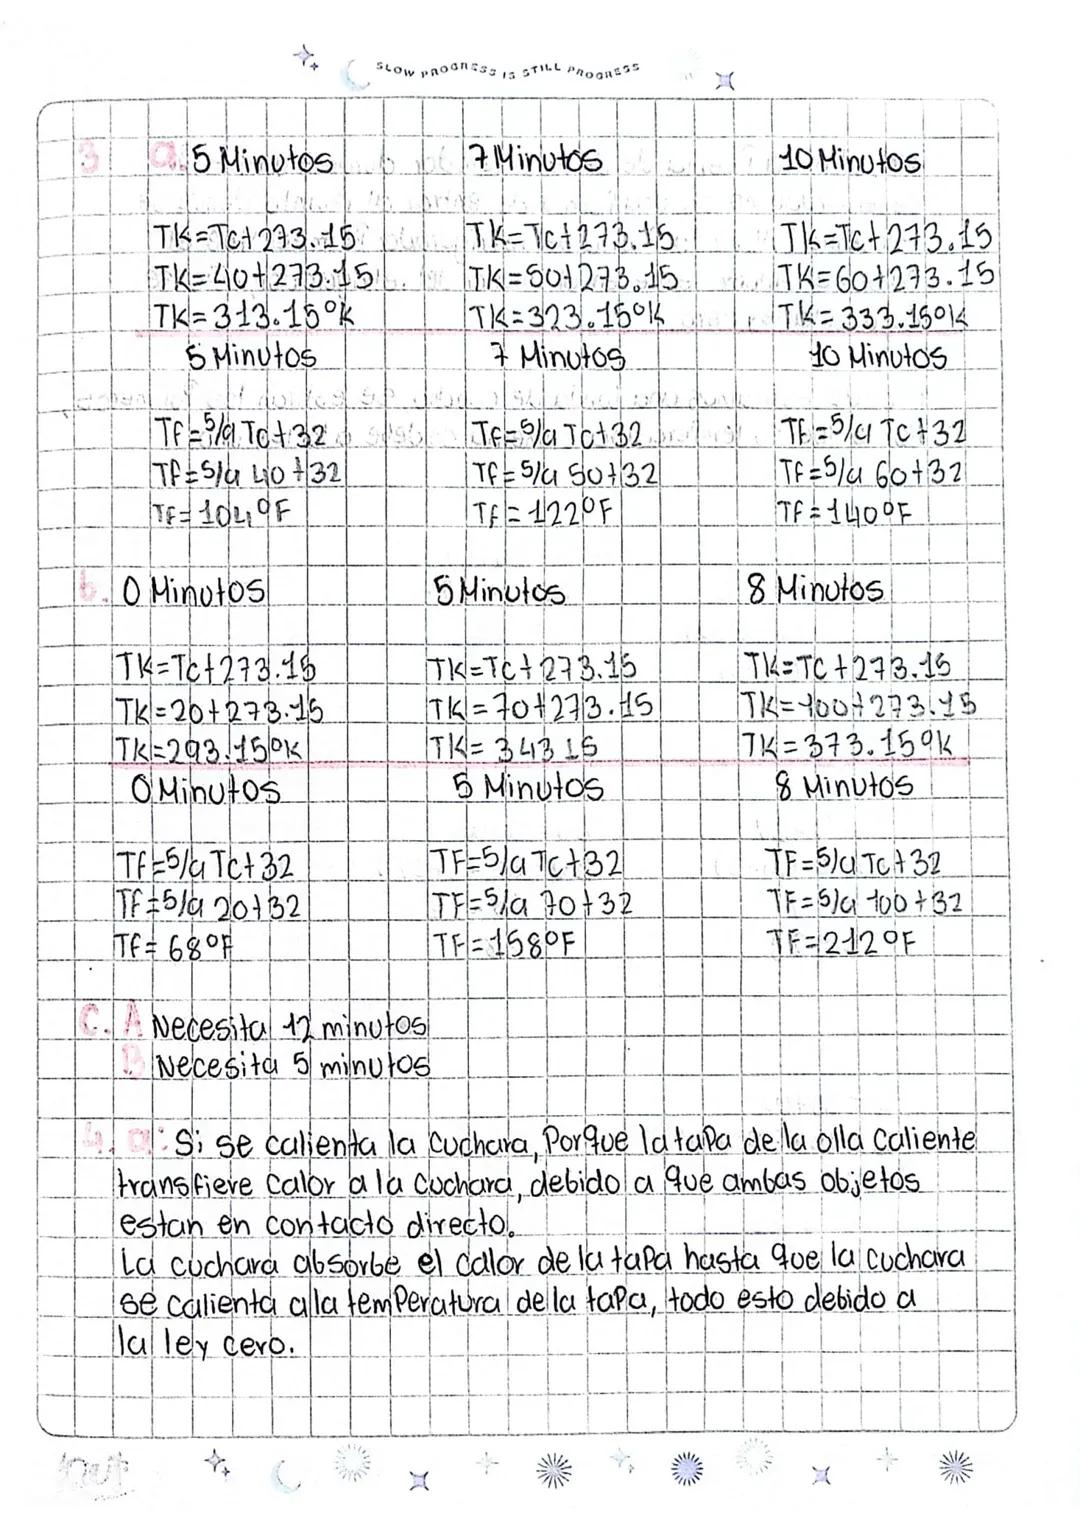 SLOW PROGRESS IS STILL PROGRESS
3 a. 5 Minutos 7 Minutos 10 Minutos
TK=Tc+273.15 TK=Tc+273.15 TK=Tc+273.15
TK=40+273.15 TK=50+273.15 TK=60+273.15
TK=313.15°K TK=323.15°K TK=333.15°K
5 Minutos 7 Minutos 10 Minutos
TF=5/9 Tc+32 TF=5/9 Tc+32 TF=5/9 Tc+32
TF=5/9 40+32 TF=5/9 50+32 TF=5/9 60+32
TF=104°F TF=122°F TF=140°F
b. 0 Minutos 5 Minutos 8 Minutos
TK=Tc+273.15 TK=Tc+273.15 TK=TC+273.15
TK=20+273.15 TK=70+273.15 TK=100+273.15
TK=293.15°K TK=343 15 TK=373.15°K
0 Minutos 5 Minutos 8 Minutos
TF=5/9 Tc+32 TF=5/9 Tc+32 TF=5/9 Tc+32
TF=5/9 20+32 TF=5/9 70+32 TF=5/9 100+32
TF=68°F TF=158°F TF=212°F
C. A Necesita 12 minutos
B Necesita 5 minutos
4. a: Si se calienta la cuchara, Porque la tapa de la olla caliente
transfiere calor a la cuchara, debido a que ambas objetos
estan en contacto directo.
La cuchara absorbe el calor de la tapa hasta que la cuchara
se calienta a la temperatura de la tapa, todo esto debido a
la ley cero.